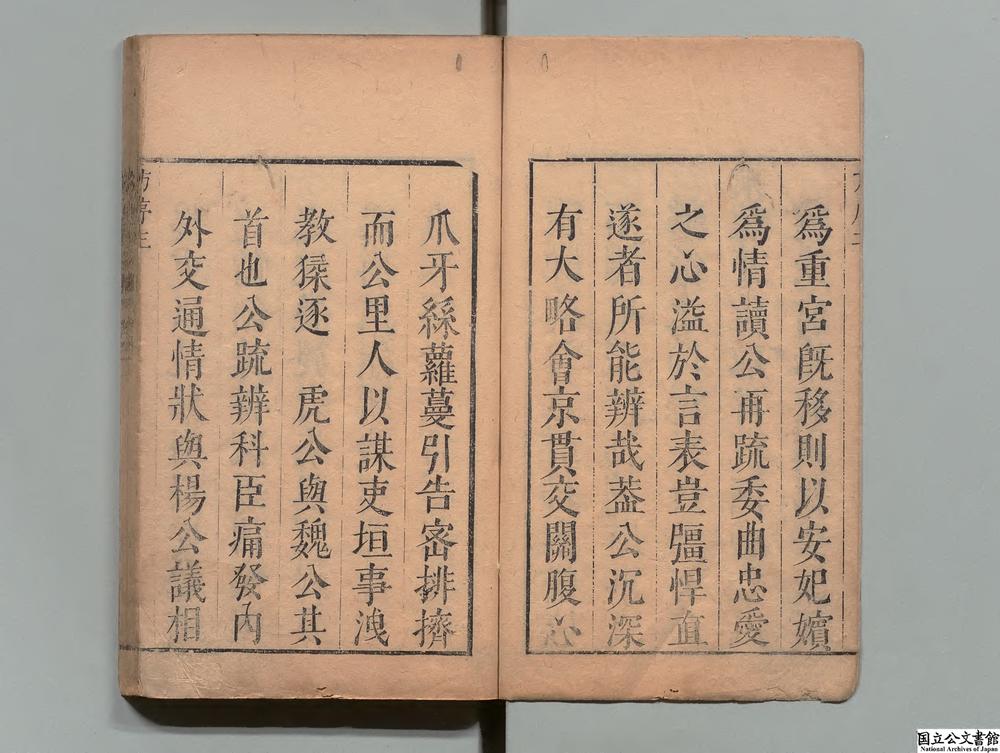 爲重宮旣移則以安妃嬪
爲情讀公再疏委曲忠愛
之心溢於言表豈彊悍直
遂者所能辨哉葢公沉深
有大略會京貫交關腹心
爪牙絲蘿蔓引告密排擠
而公里人以謀吏垣事洩
教猱逐　虎公與魏公其
首也公疏辨科臣痛發內
外交通情狀與楊公議相
国立公文書館
National Archives of Japan